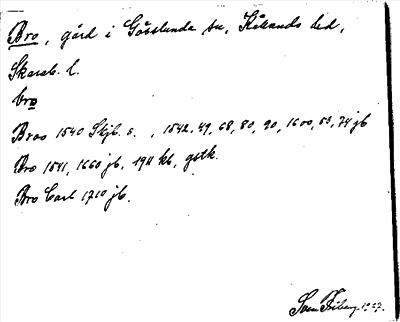 Bro, gård i Gösslunda sn, Kållands hd,
Skarab. l.
bro
Broo 1540 Skjb. s. , 1542, 49, 68, 80, 90, 1600, 53, 74 jb
Bro 1541, 1660 jb. 1911 kb, gstk.
Bro Carl 1710 jb.
Sven 1927.